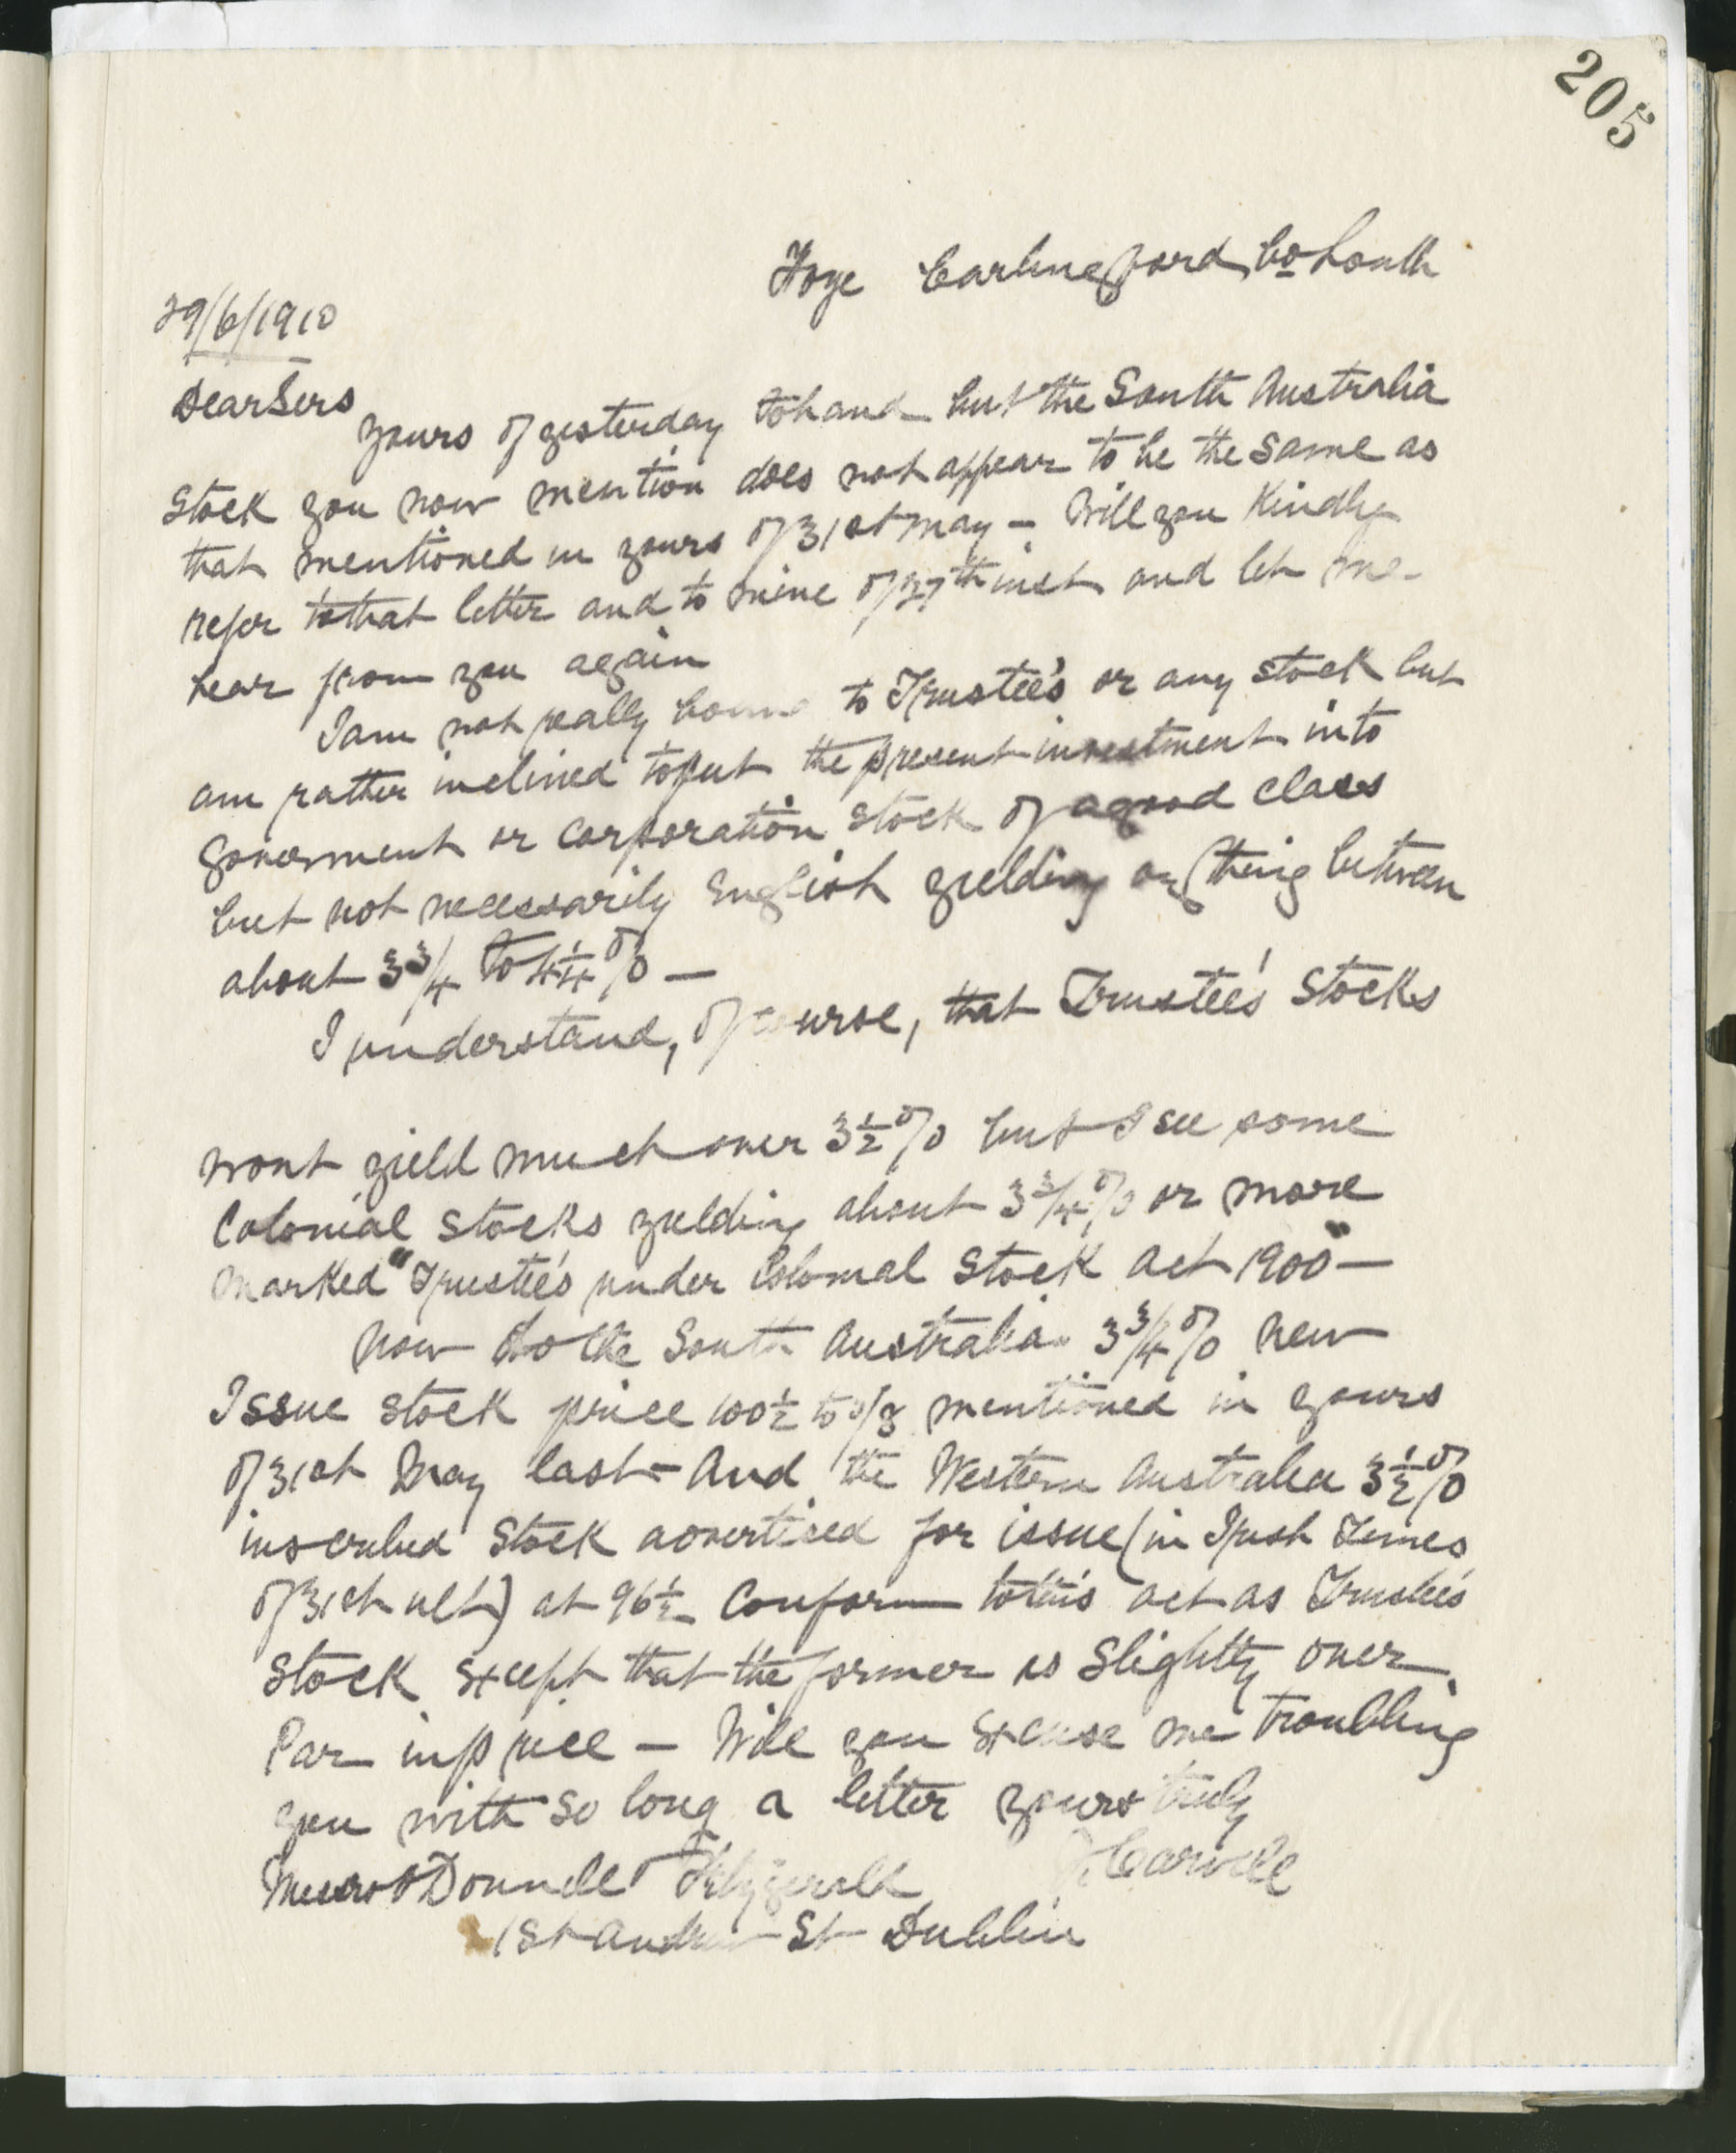 205
Foye Carlingford Co Louth
29/6/1910
Dear Sirs
yours of yesterday to hand but the South Australia
Stock you now mention does not appear to be the same as
that mentioned in yours of 31st May - Will you Kindly
refer to that letter and to mine of 27th inst and let me
hear from you again
I am not really bound to Trustee's or any stock but
am rather inclined to put the present investment into
Government or Corporation stock of a good class
but not necessarily English yielding anything between
about 3 3/4 to 4 1/4 % -
I understand, of course, that Trustee's Stocks
wont yield much over 3 1/2 % but I see some
Colonial Stocks yielding about 3 3/4 % or more
marked "Trustee's under Colonial Stock act 1900" -
now do the South Australia 3 3/4 % new
Issue stock price 100 1/2 to mentioned in yours
of 31st May last - And the Western Australia 3 1/2 %
inscribed Stock advertised for issue (in Irish Times
of 31st ult) at 96 1/2 Conform to this act as Trustee's
Stock Except that the former is Slightly over
Par in price - Will you Excuse me troubling
you with so long a letter yours truly
Messrs O'Donnell & Fitzgerald J Carvill
1 St Andrew St Dublin